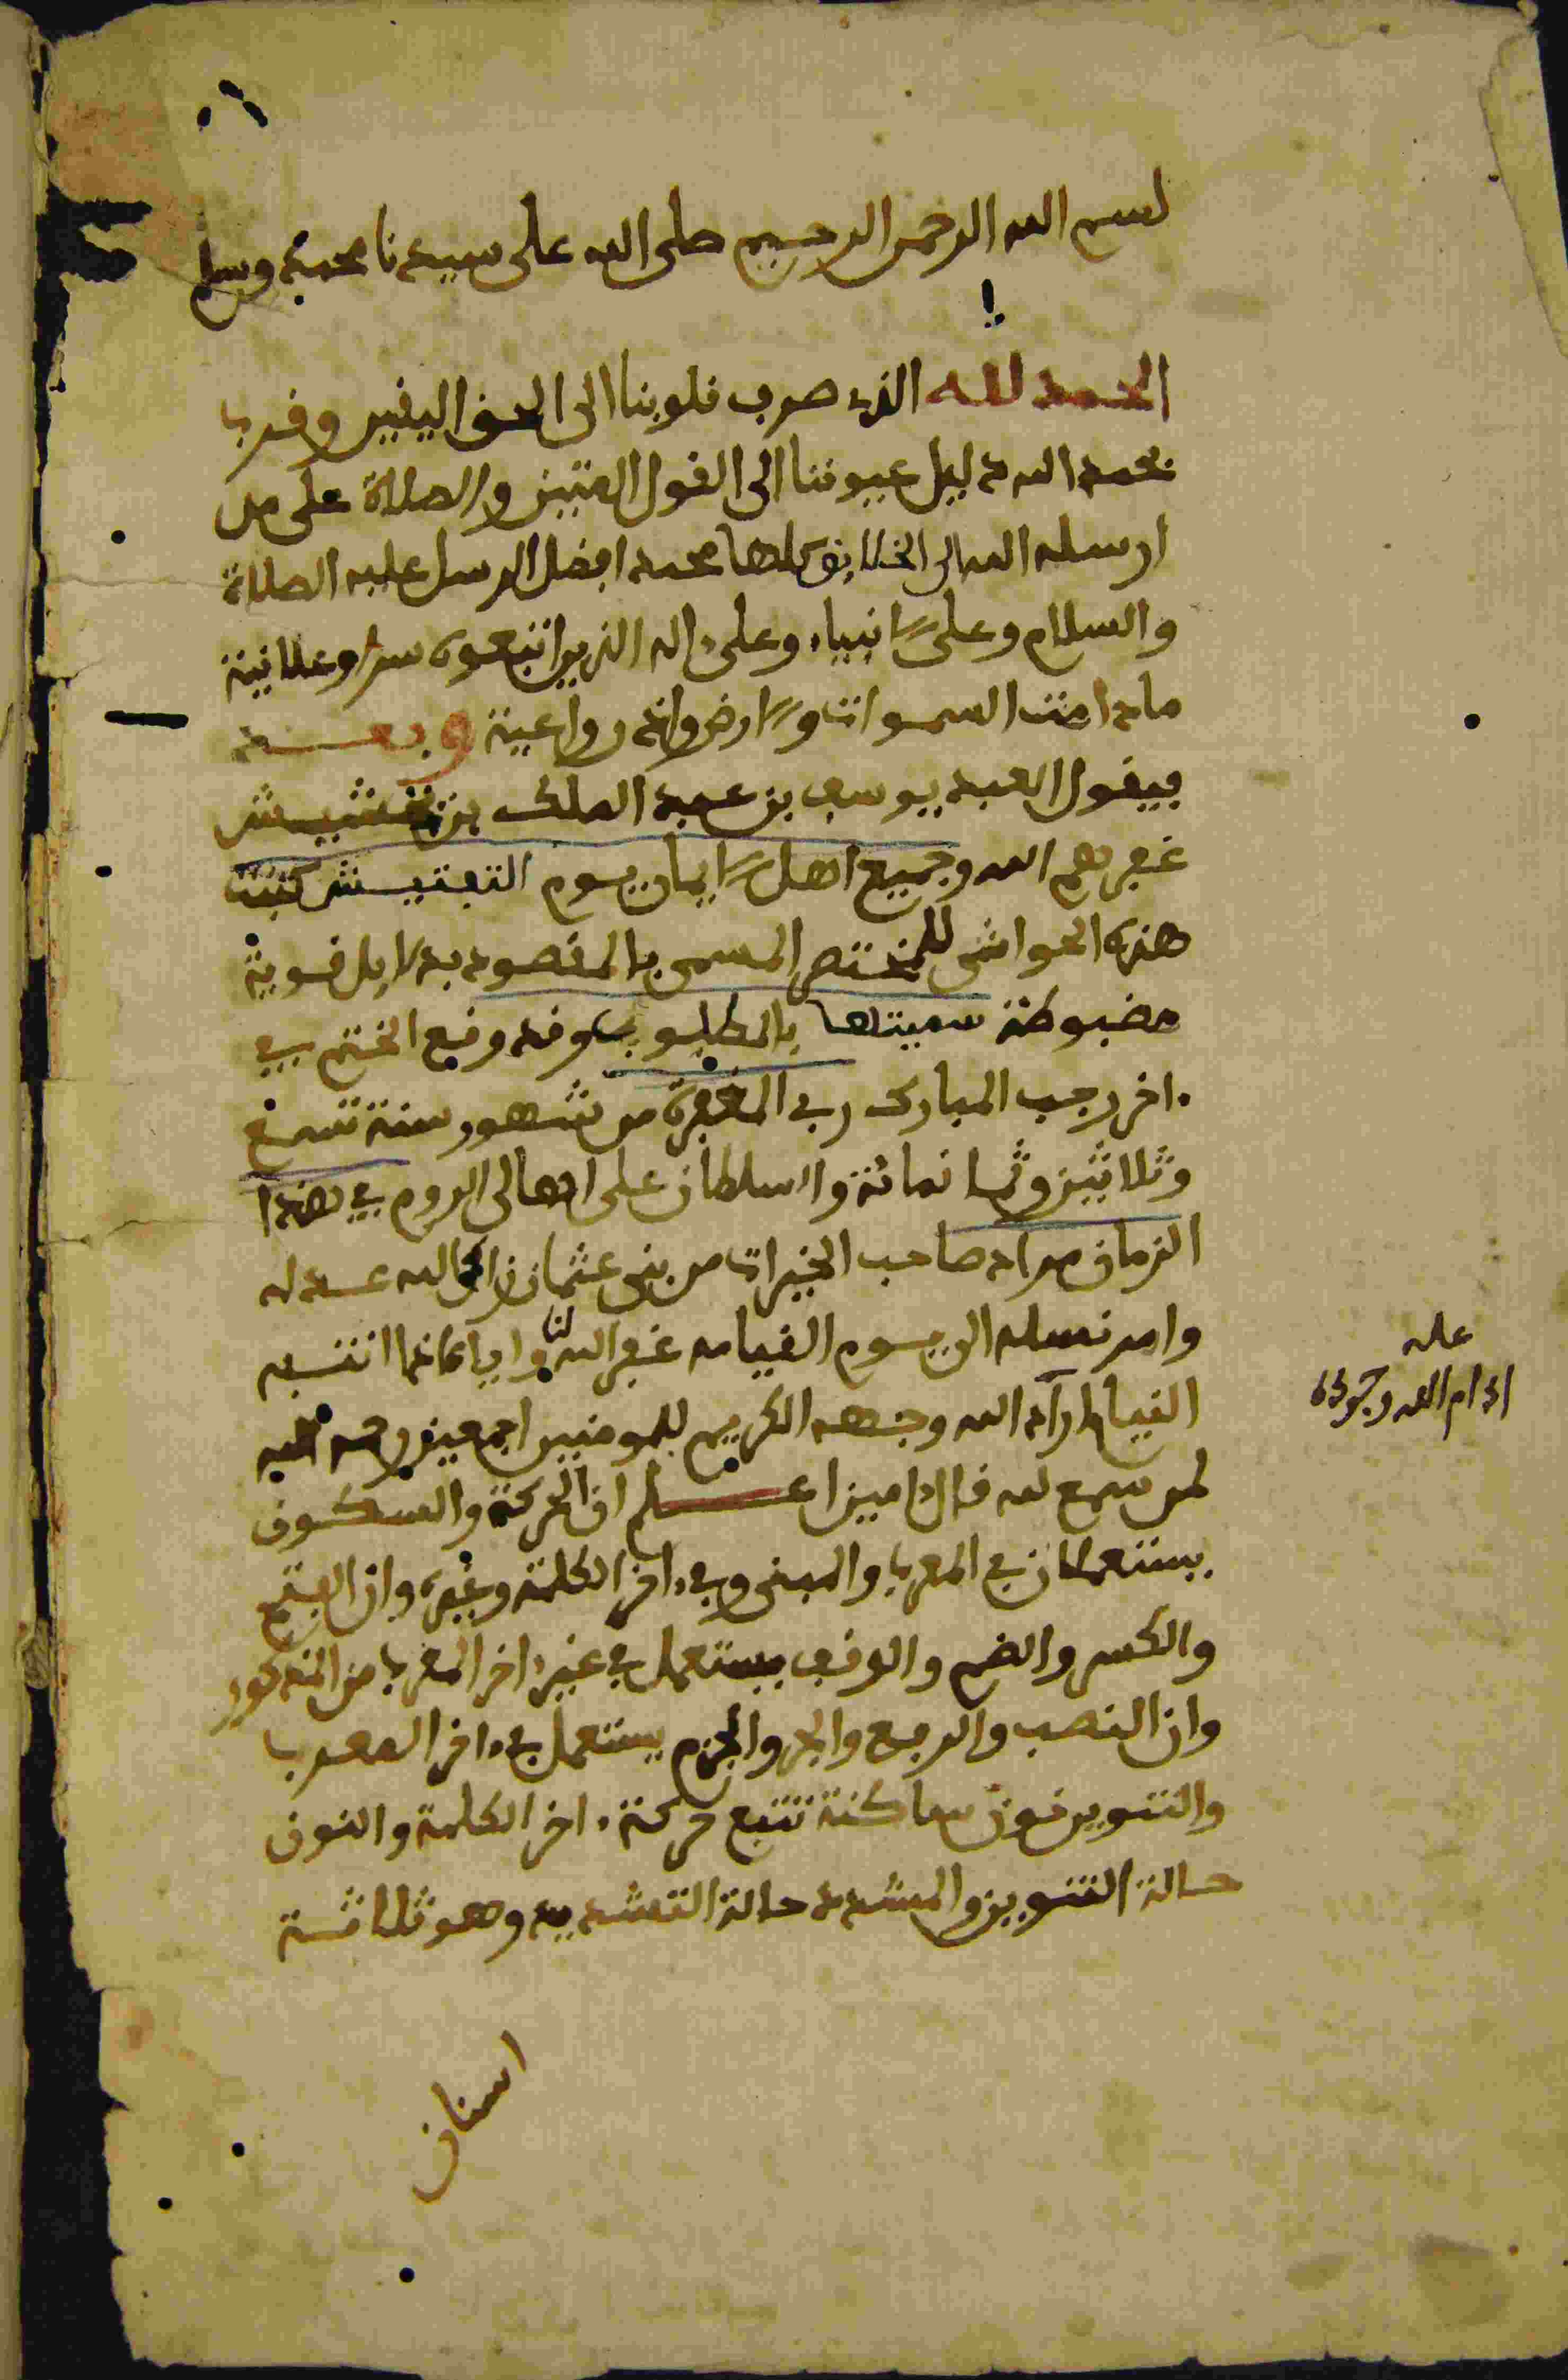 بسم الله الرحمن الرحيم صلى الله على سيدنا محمد وسلم
الحمد لله الذي صرف قلوبنا الى الحق اليقين وقرب
بحمد الله دليل عيوننا الى القول المتين والصلاة على من
ارسله الله الى الخلايق كلها محمد افضل الرسل عليه الصلاة
والسلام وعلى الانبياء وعلى ءاله الذين اتبعوه سرا وعلانية
ما دامت السموات والارض واذن واعية وبعد
فيقول العبد يوسف بن عبد الملك بن بخشيش
غفرهم الله وجميع اهل الايمان يوم التفتيش كتبت
هذه الحواشى للمختصر المسمى بالمقصود بدلايل قوية
مضبوطة سميتها بالمطلوب وقد وقع الختم في
ءاخر رجب المبارك رب المغفرة من شهور سنة تسع
وثلاثين وثمانمائة والسلطان على اهالى الروم في هذا
الزمان مراد صاحب الخيرات من بنى عثمان زاد الله عدله
وامد نسله الى يوم القيامه غفر الله لنا واياه كلما انتبه
النيام اراد الله وجهه الكريم للمومنين اجمعين ورحمة
لمن سمع له قال ءامين اعلم ان الحركة والسكون
يستعملان في المعرب والمبنى وفي ءاخر الكلمة وغيره وان الفتح
والكسر والضم والوقف يستعمل في غير ءاخر المعرب من المذكور
وان النصب والرفع والجر والجزم يستعمل في ءاخر المعرب
والتنوين نون ساكنة تتبع حركة ءاخر الكلمة والنون
حالة التنوين والمشدد حالة التشديد وهو ثلاثة
عله
ادام الله وجوده
اسنان